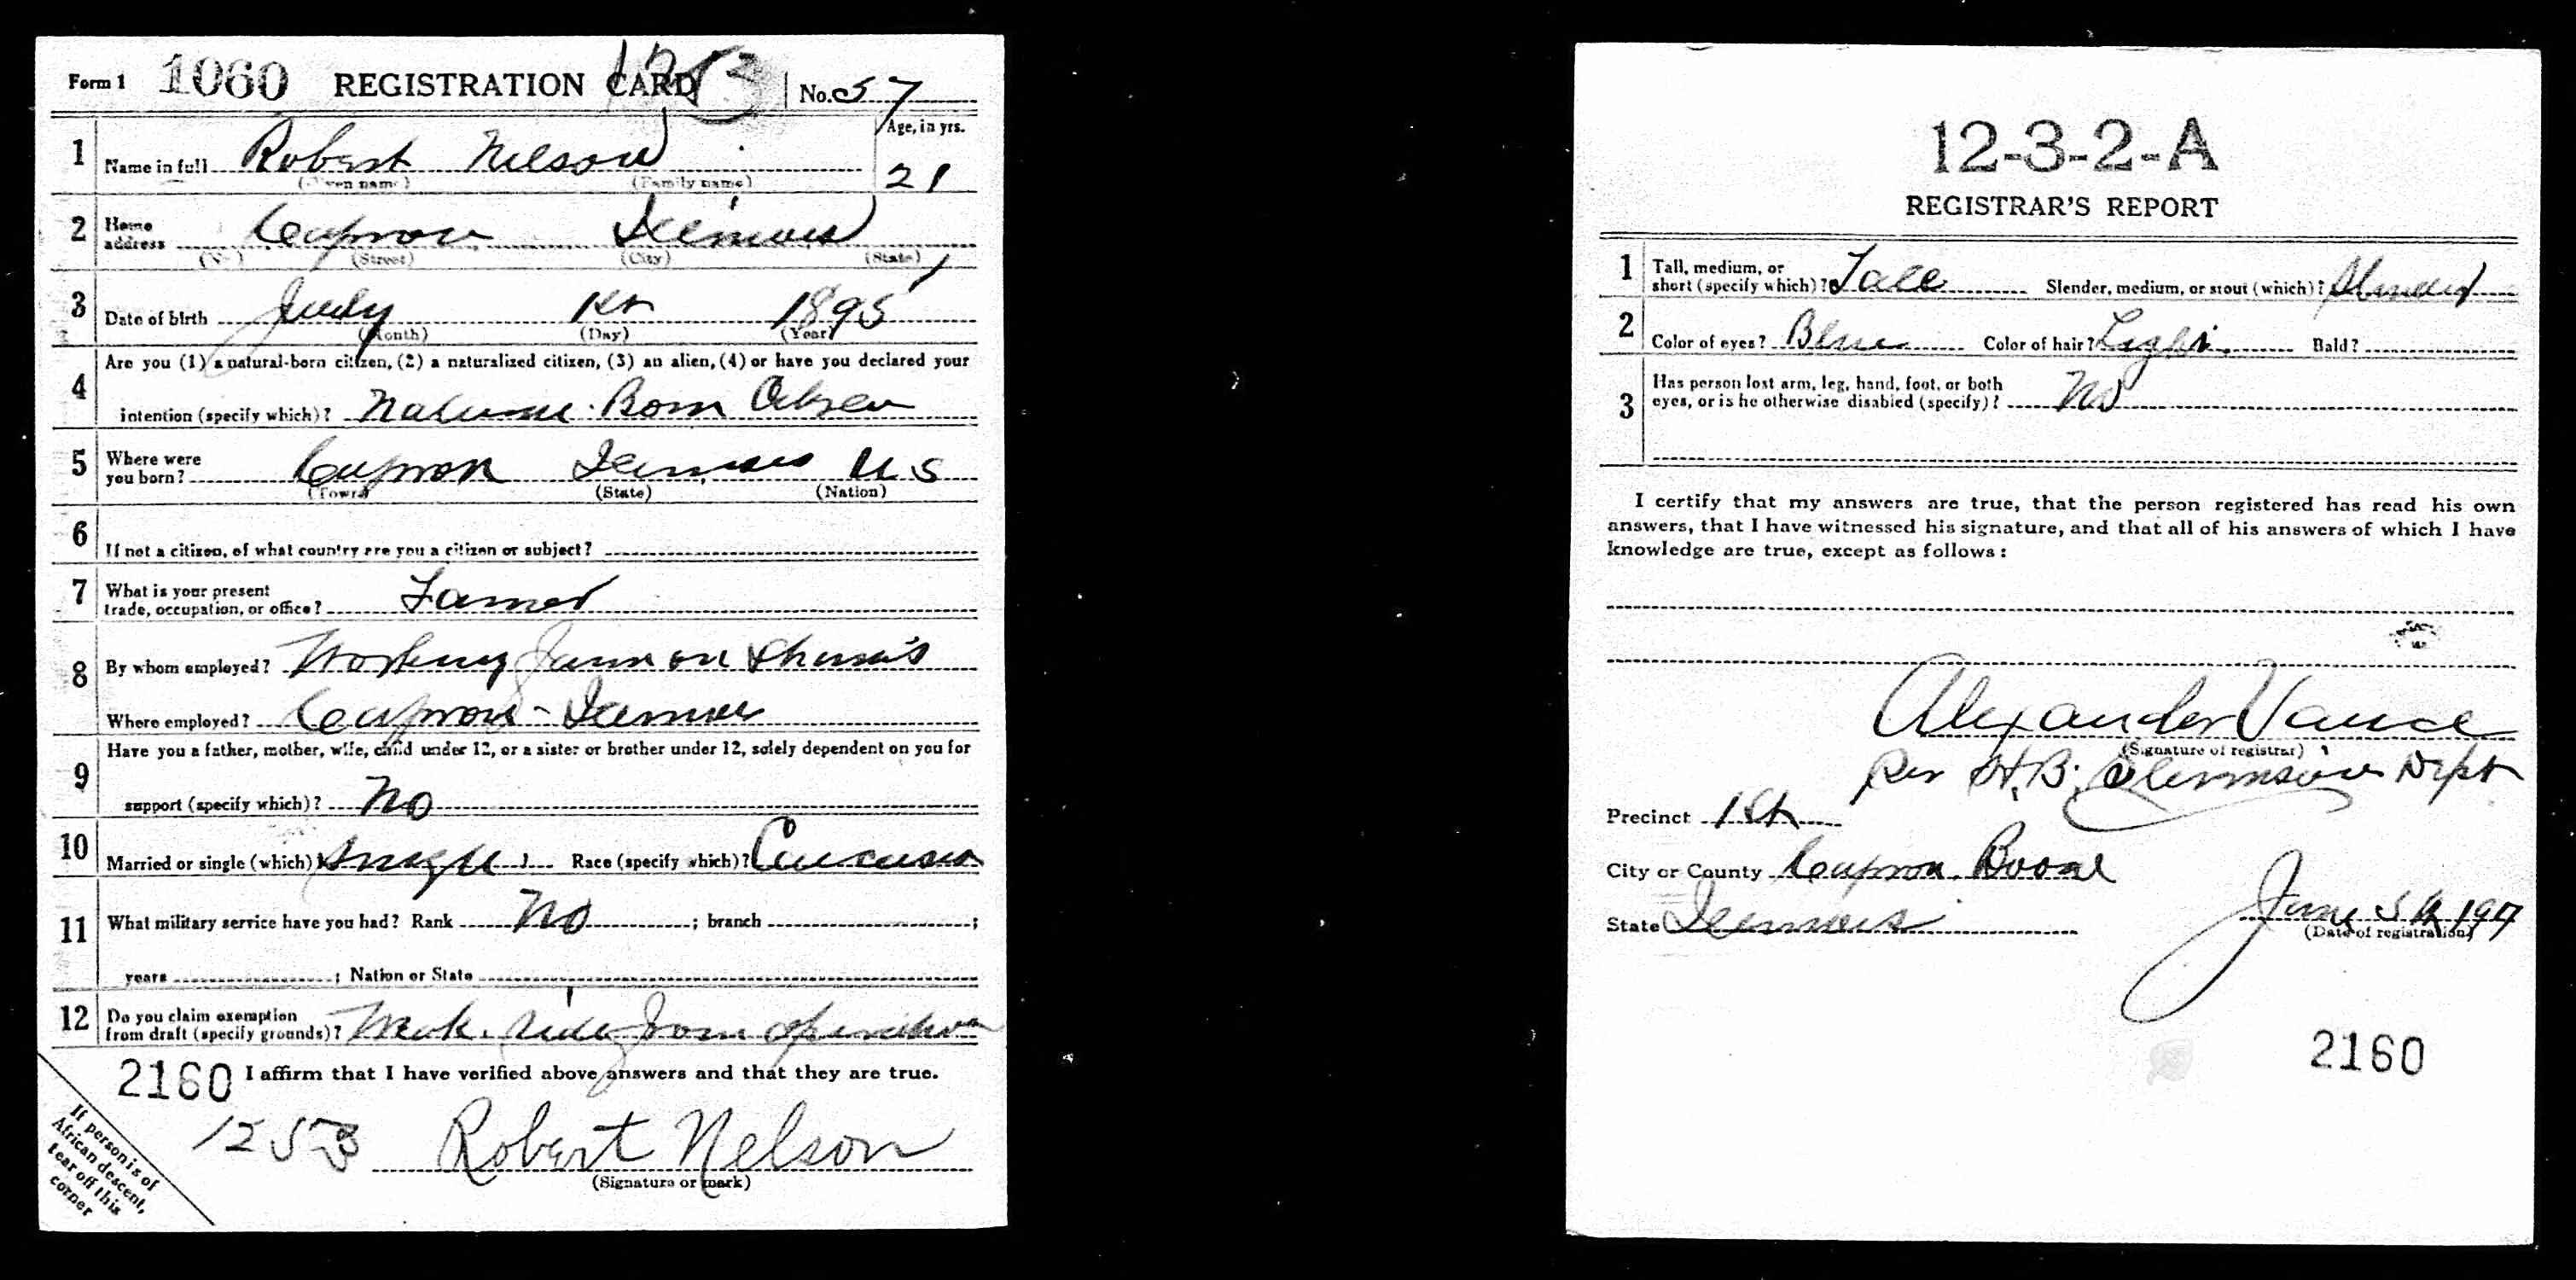 Form 1 1060 REGISTRATION CARD No. 57
1 Name in full Robert Nelson Age, in yrs.
(Given name) (Family name) 21
2 Home address Capron Illinois
(No.) (Street) (City) (State)
3 Date of birth July 1st 1895
(Month) (Day) (Year)
Are you (1) a natural-born citizen, (2) a naturalized citizen, (3) an alien, (4) or have you declared your
4 intention (specify which)? Natural Born Citizen
5 Where were you born? Capron Illinois U S
(Town) (State) (Nation)
6 If not a citizen, of what country are you a citizen or subject?
7 What is your present trade, occupation, or office? Farmer
8 By whom employed? Working Farm on
Where employed? Capron - Illinois
Have you a father, mother, wife, child under 12, or a sister or brother under 12, solely dependent on you for
9 support (specify which)? No
10 Married or single (which)? Single Race (specify which)? Caucasian
11 What military service have you had? Rank No ; branch ;
years ; Nation or State
12 Do you claim exemption from draft (specify grounds)? Weak side from operation
2160 I affirm that I have verified above answers and that they are true.
1253 Robert Nelson
(Signature or mark)
If person is of
African descent,
tear off this
corner
12-3-2-A
REGISTRAR'S REPORT
1 Tall, medium, or short (specify which)? Tall Slender, medium, or stout (which)? Slender
2 Color of eyes? Blue Color of hair? Light Bald?
3 Has person lost arm, leg, hand, foot, or both
eyes, or is he otherwise disabled (specify)? No
I certify that my answers are true, that the person registered has read his own
answers, that I have witnessed his signature, and that all of his answers of which I have
knowledge are true, except as follows:
Alexander Vance
(Signature of registrar)
Per H. B.
Precinct 1st
City or County Capron Boone
State Illinois June 5th 1917
(Date of registration)
2160